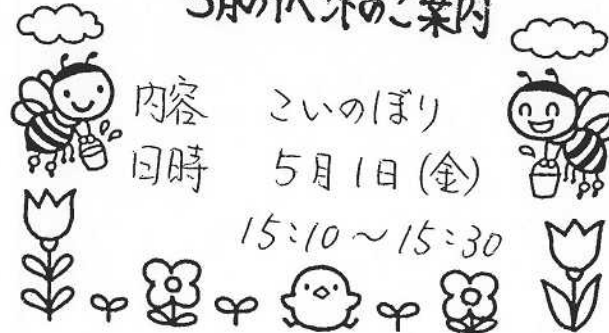 5月のイベントのご案内
内容 こいのぼり
日時 5月1日(金)
15:10～15:30